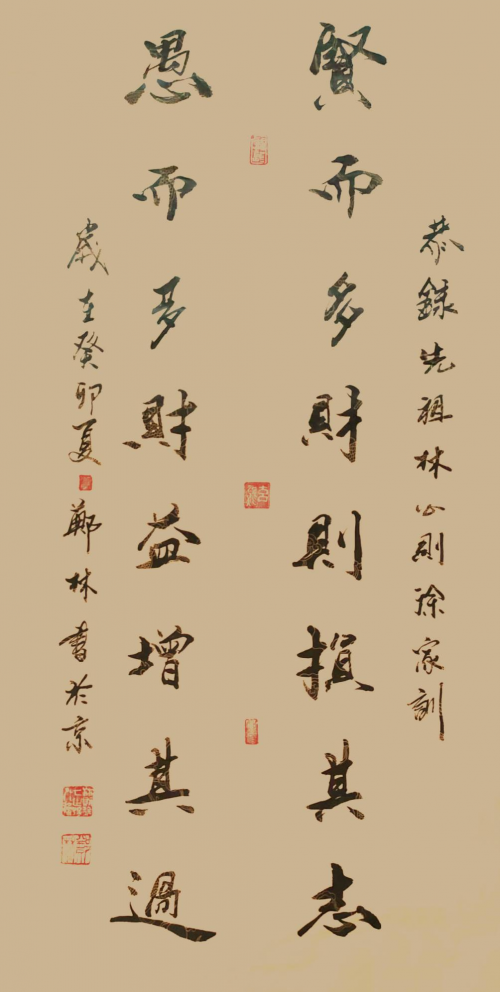 恭録先祖林公則徐家訓
賢而多財則損其志
愚而多財益增其過
歲在癸卯夏
鄭林書於京